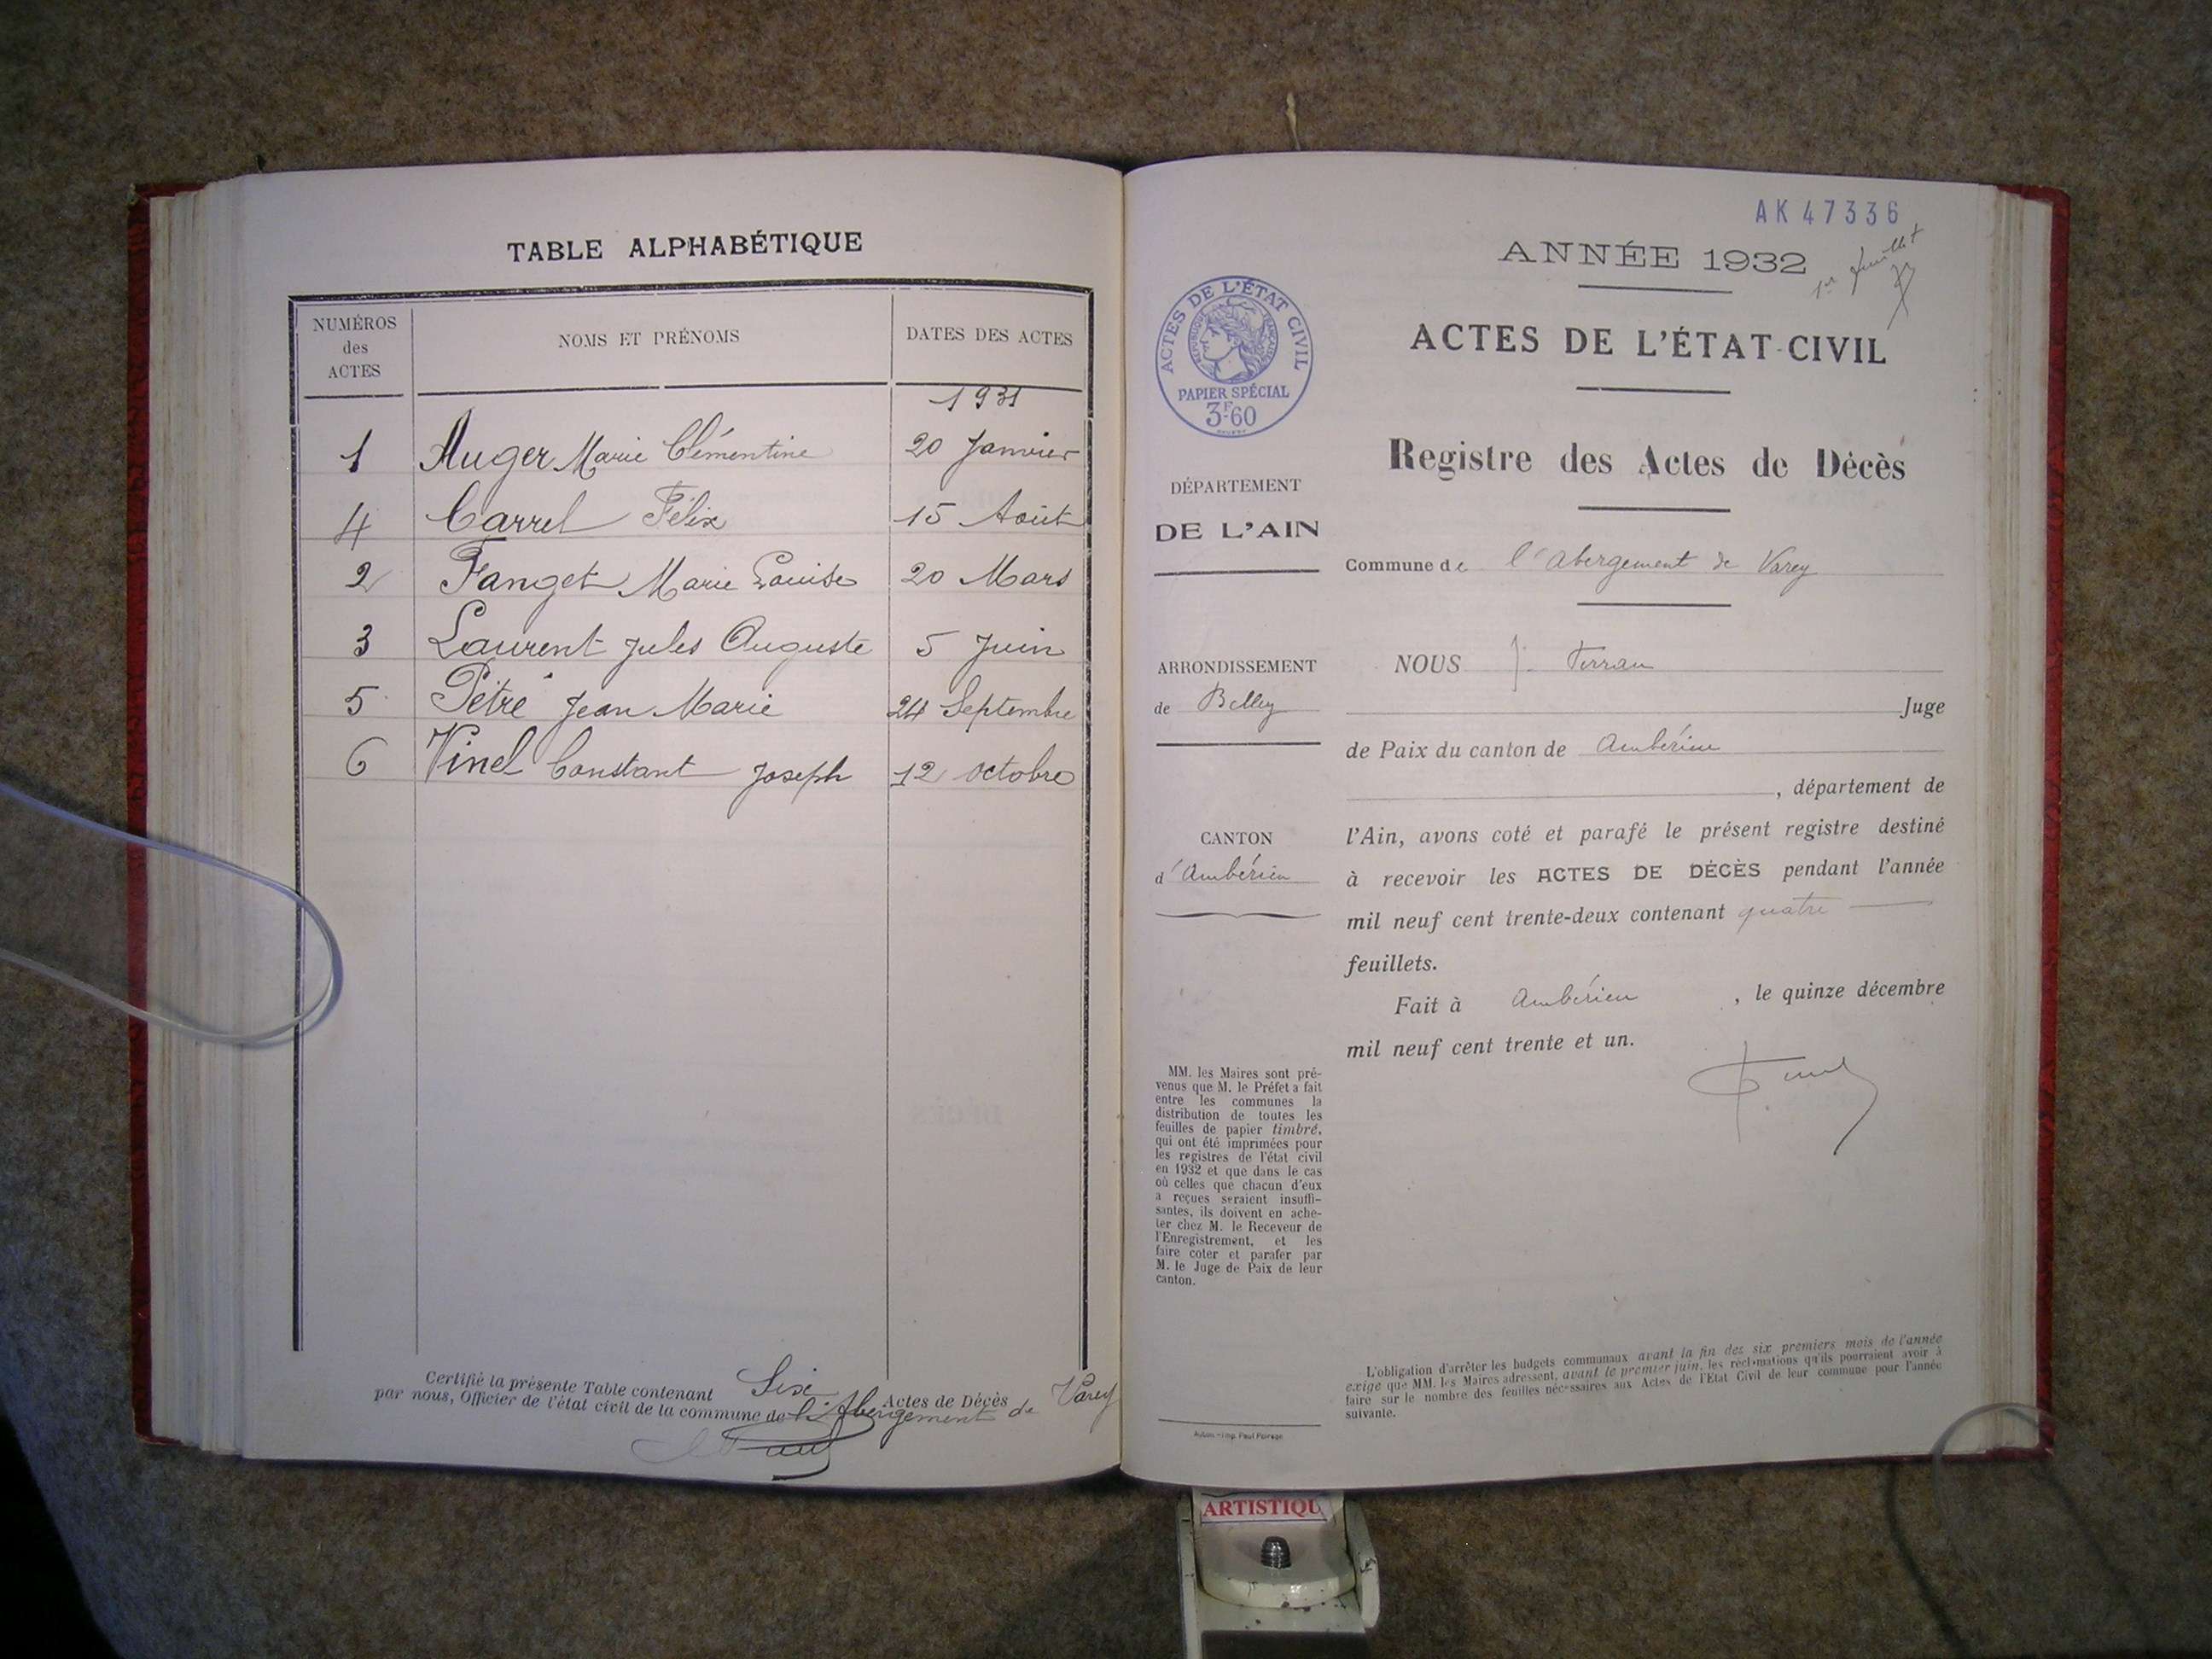 TABLE ALPHABÉTIQUE
NUMÉROS
des
ACTES
NOMS ET PRÉNOMS
DATES DES ACTES
1931
1 Auger Marie Clémentine 20 Janvier
4 Carrel Félix 15 Août
2 Fanget Marie Louise 20 Mars
3 Laurent Jules Auguste 5 Juin
5 Pétré Jean Marie 24 Septembre
6 Vinel Constant Joseph 12 octobre
Certifié la présente Table contenant Six Actes de Décès
par nous, Officier de l'état civil de la commune de l'Abergement de Varey
AK 47336
1er feuillet
ANNÉE 1932
ACTES DE L'ÉTAT CIVIL
RÉPUBLIQUE FRANÇAISE
PAPIER SPÉCIAL
3F60
ACTES DE L'ÉTAT-CIVIL
Registre des Actes de Décès
DÉPARTEMENT
DE L'AIN
Commune de l'Abergement de Varey
ARRONDISSEMENT
de Belley
CANTON
d'Ambérieu
NOUS J. Ferran
Juge
de Paix du canton de Ambérieu
, département de
l'Ain, avons coté et parafé le présent registre destiné
à recevoir les ACTES DE DÉCÈS pendant l'année
mil neuf cent trente-deux contenant quatre
feuillets.
Fait à Ambérieu , le quinze décembre
mil neuf cent trente et un.
MM. les Maires sont pré-
venus que M. le Préfet a fait
entre les communes la
distribution de toutes les
feuilles de papier timbré,
qui ont été imprimées pour
les registres de l'état civil
en 1932 et que dans le cas
où celles que chacun d'eux
a reçues seraient insuffi-
santes, ils doivent en ache-
ter chez M. le Receveur de
l'Enregistrement, et les
faire coter et parafer par
M. le Juge de Paix de leur
canton.
L'obligation d'arrêter les budgets communaux avant la fin des six premiers mois de l'année
exige que MM. les Maires adressent, avant le premier juin, les réclamations qu'ils pourraient avoir à
faire sur le nombre des feuilles nécessaires aux Actes de l'Etat Civil de leur commune pour l'année
suivante.
Imp. Paul
ARTISTIQU